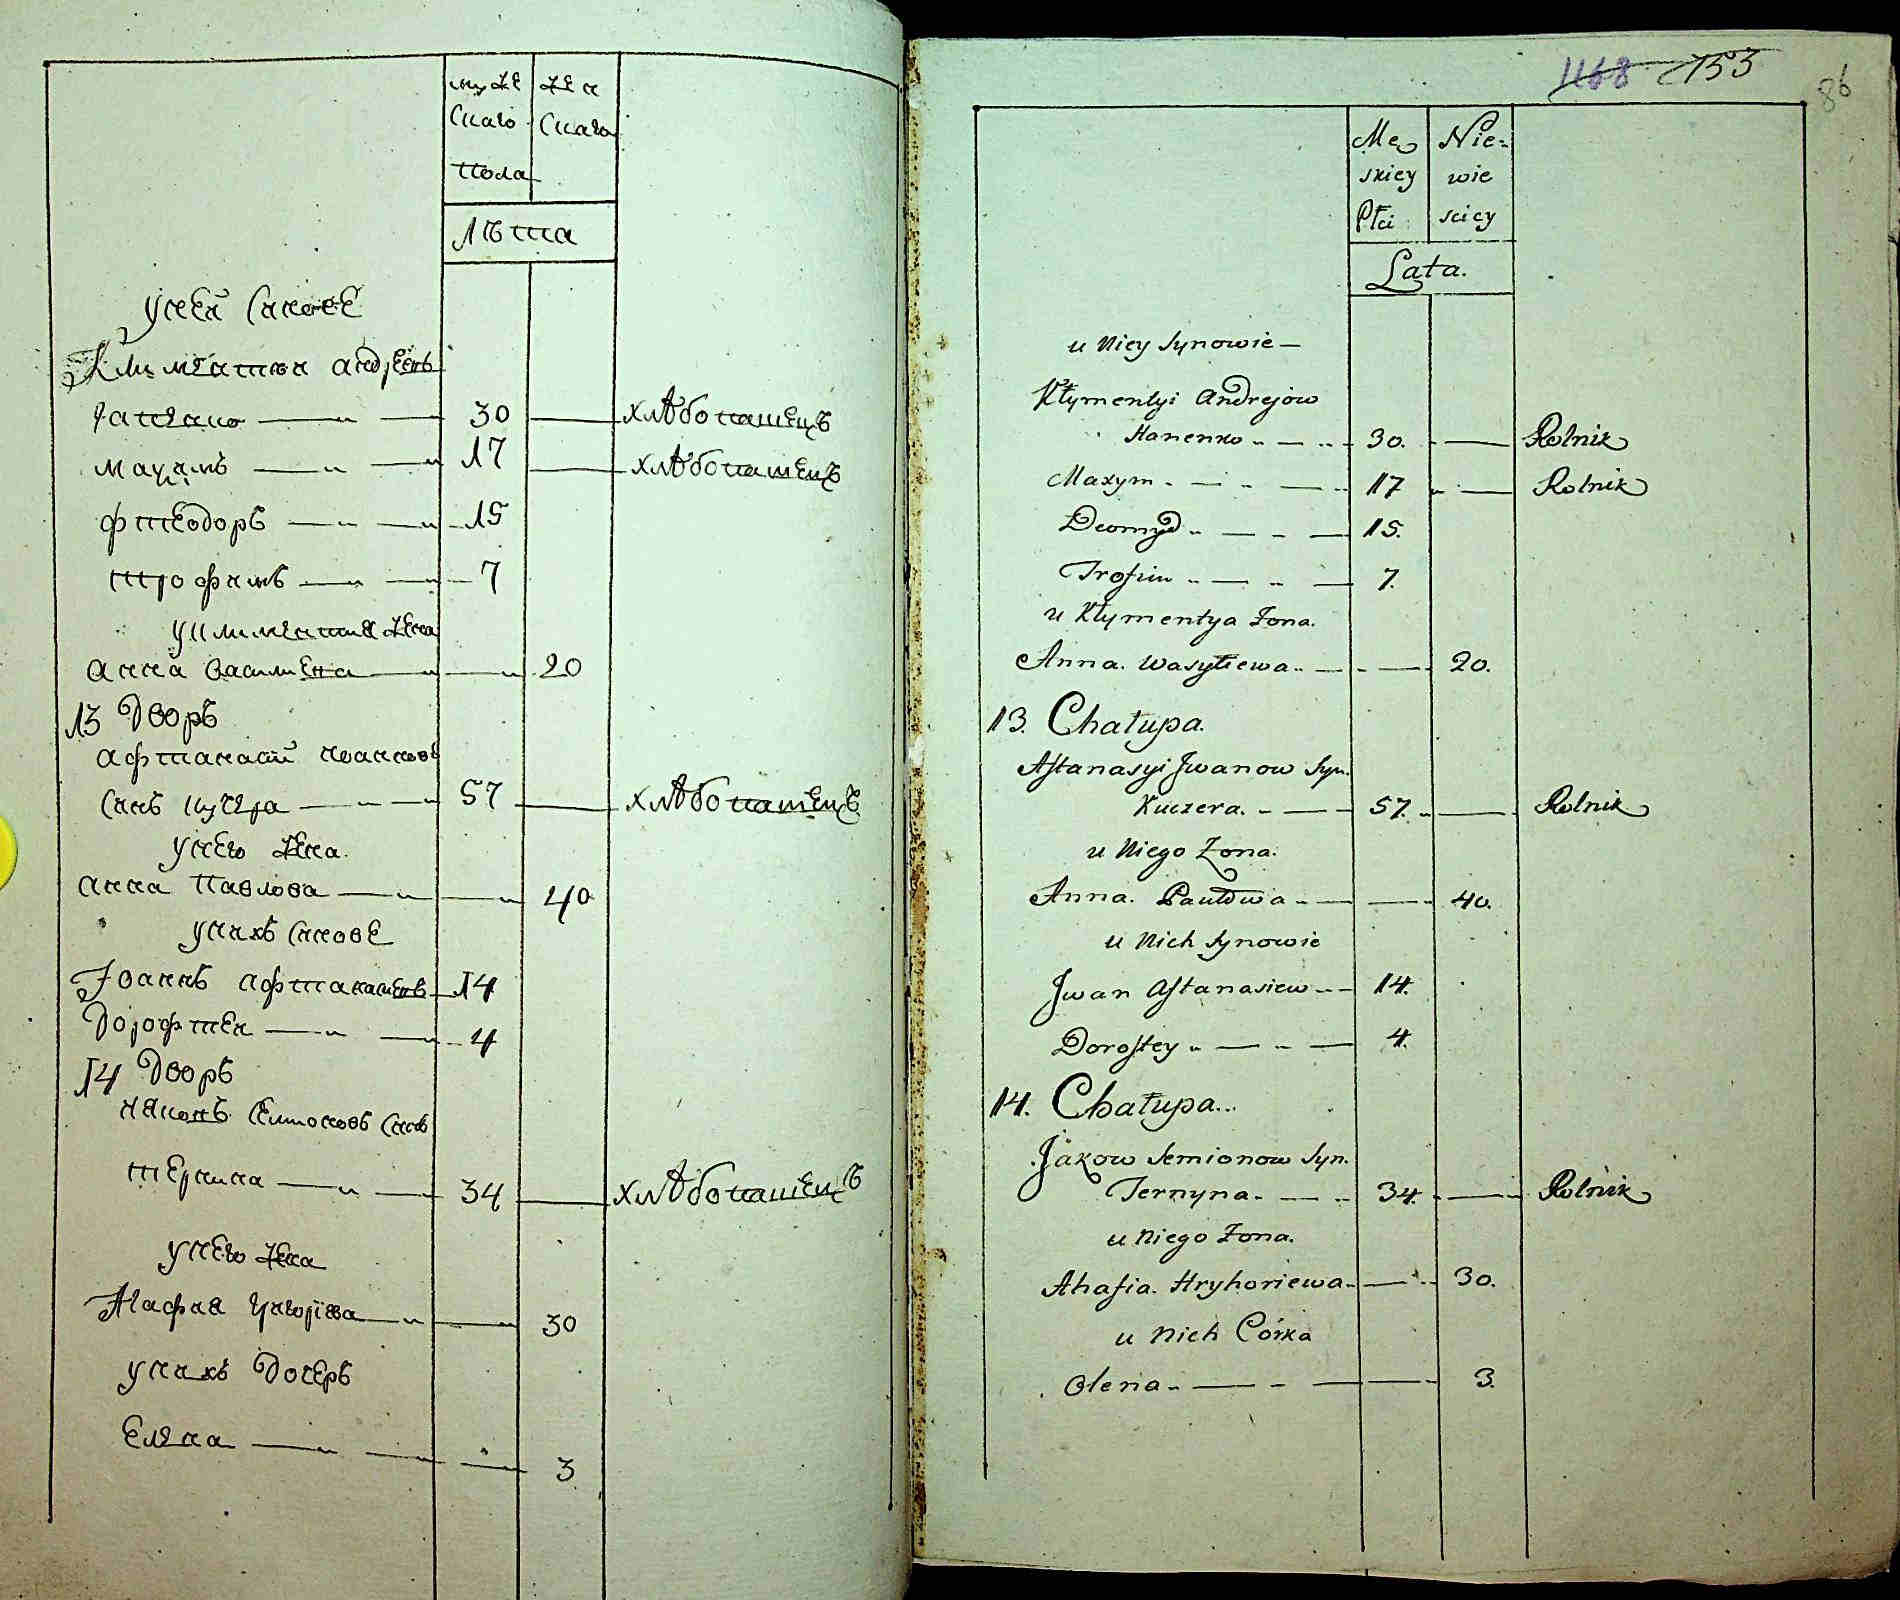 муже
скаго
пола
жен
скаго
лѣта
у ней синове
Климентий андреевъ
гапеенко 30 хлѣбопашецъ
Максимъ 17 хлѣбопашецъ
фтеодоръ 15
трофимъ 7
у климентия жена
анна василиева 20
13 Дворъ
афтанасий иоанновъ
синъ кучера 57 хлѣбопашецъ
у него жена
анна павлова 40
у нихъ синове
Иоаннъ афтанасиевъ 14
Дорофтеи 4
14 Дворъ
ияковъ семионовъ синъ
тернина 34 хлѣбопашецъ
у него жена
Агафия григориева 30
у нихъ дочеръ
елена 3
1168 153
86
Mę
skiey
Płci
Nie=
wie
sciey
Lata.
u Niey Synowie
Kłymentyi Andrejow
Hanenko 30. Rolnik
Maxym 17 Rolnik
Deomyd 15.
Trofim 7.
u Kłymentya Żona.
Anna. Wasyliewa 20.
13. Chałupa.
Aftanasyi Jwanow Syn.
Kuczera. 57. Rolnik
u Niego Żona.
Anna. Pawłowa 40.
u Nich Synowie
Jwan Aftanasiew 14.
Doroftey 4.
14. Chałupa...
Jakow Semionow Syn.
Ternyna. 34. Rolnik
u Niego Żona.
Ahafia. Hryhoriewa. 30.
u Nich Córka
Olena 3.